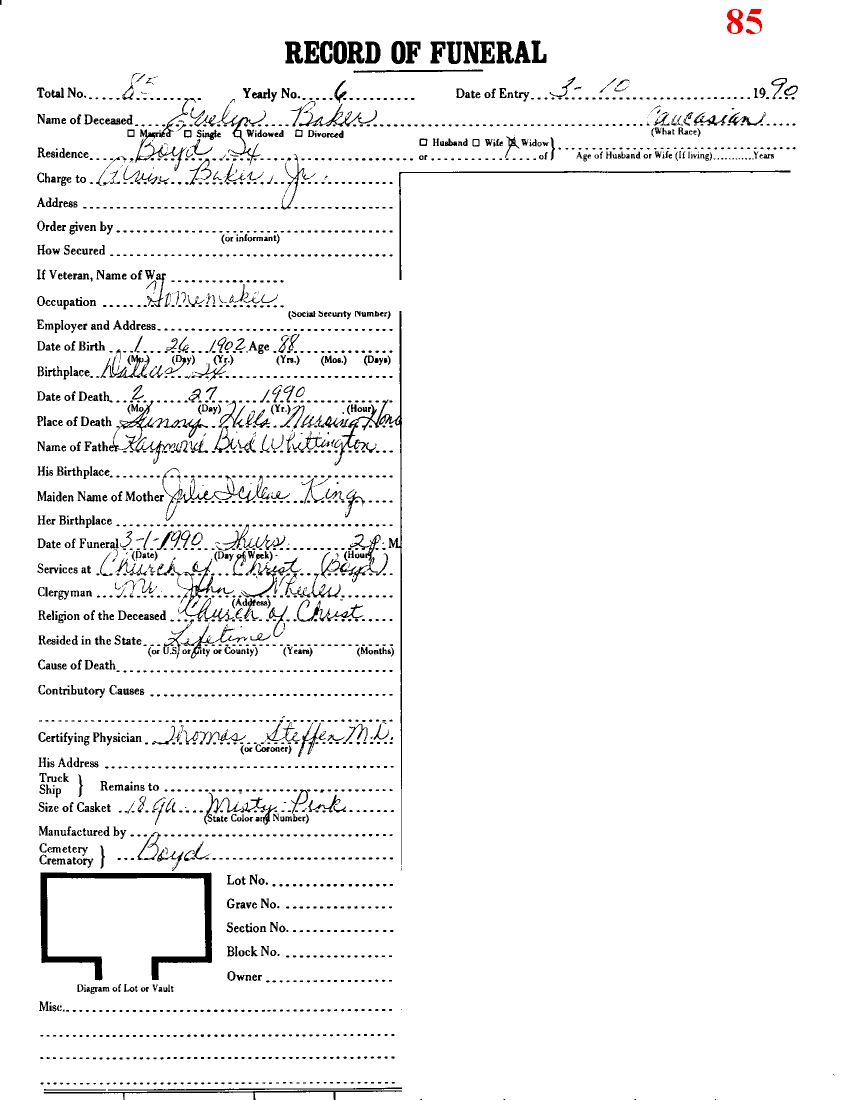 85
RECORD OF FUNERAL
Total No. 85 Yearly No. 6 Date of Entry 3- 10 1990
Name of Deceased Evelyn Baker Caucasian
☐ Married ☐ Single ☑ Widowed ☐ Divorced (What Race)
Residence Boyd Tx ☐ Husband ☐ Wife ☒ Widow
or of Age of Husband or Wife (If living) Years
Charge to Alvin Baker, Jr.
Address
Order given by
(or informant)
How Secured
If Veteran, Name of War
Occupation Homemaker
(Social Security Number)
Employer and Address
Date of Birth 1 26 1902 Age 88
(Mo.) (Day) (Yr.) (Yrs.) (Mos.) (Days)
Birthplace Dallas Tx
Date of Death 2 27 1990
(Mo) (Day) (Yr.) (Hour)
Place of Death Sunny Hills Nursing Home
Name of Father Raymond Bird Whittington
His Birthplace
Maiden Name of Mother Julie King
Her Birthplace
Date of Funeral 3-1-1990 Thurs. 2 P. M.
(Date) (Day of Week) (Hour)
Services at Church of Christ (Boyd)
Clergyman Mr. John Wheeler
(Address)
Religion of the Deceased Church of Christ
Resided in the State Lifetime
(or U.S) or City or County) (Years) (Months)
Cause of Death
Contributory Causes
Certifying Physician Thomas Steffen M.D.
(or Coroner)
His Address
Truck
Ship } Remains to
Size of Casket 18 ga. Misty Pink
(State Color and Number)
Manufactured by
Cemetery
Crematory } Boyd
Lot No.
Grave No.
Section No.
Block No.
Owner
Diagram of Lot or Vault
Misc.